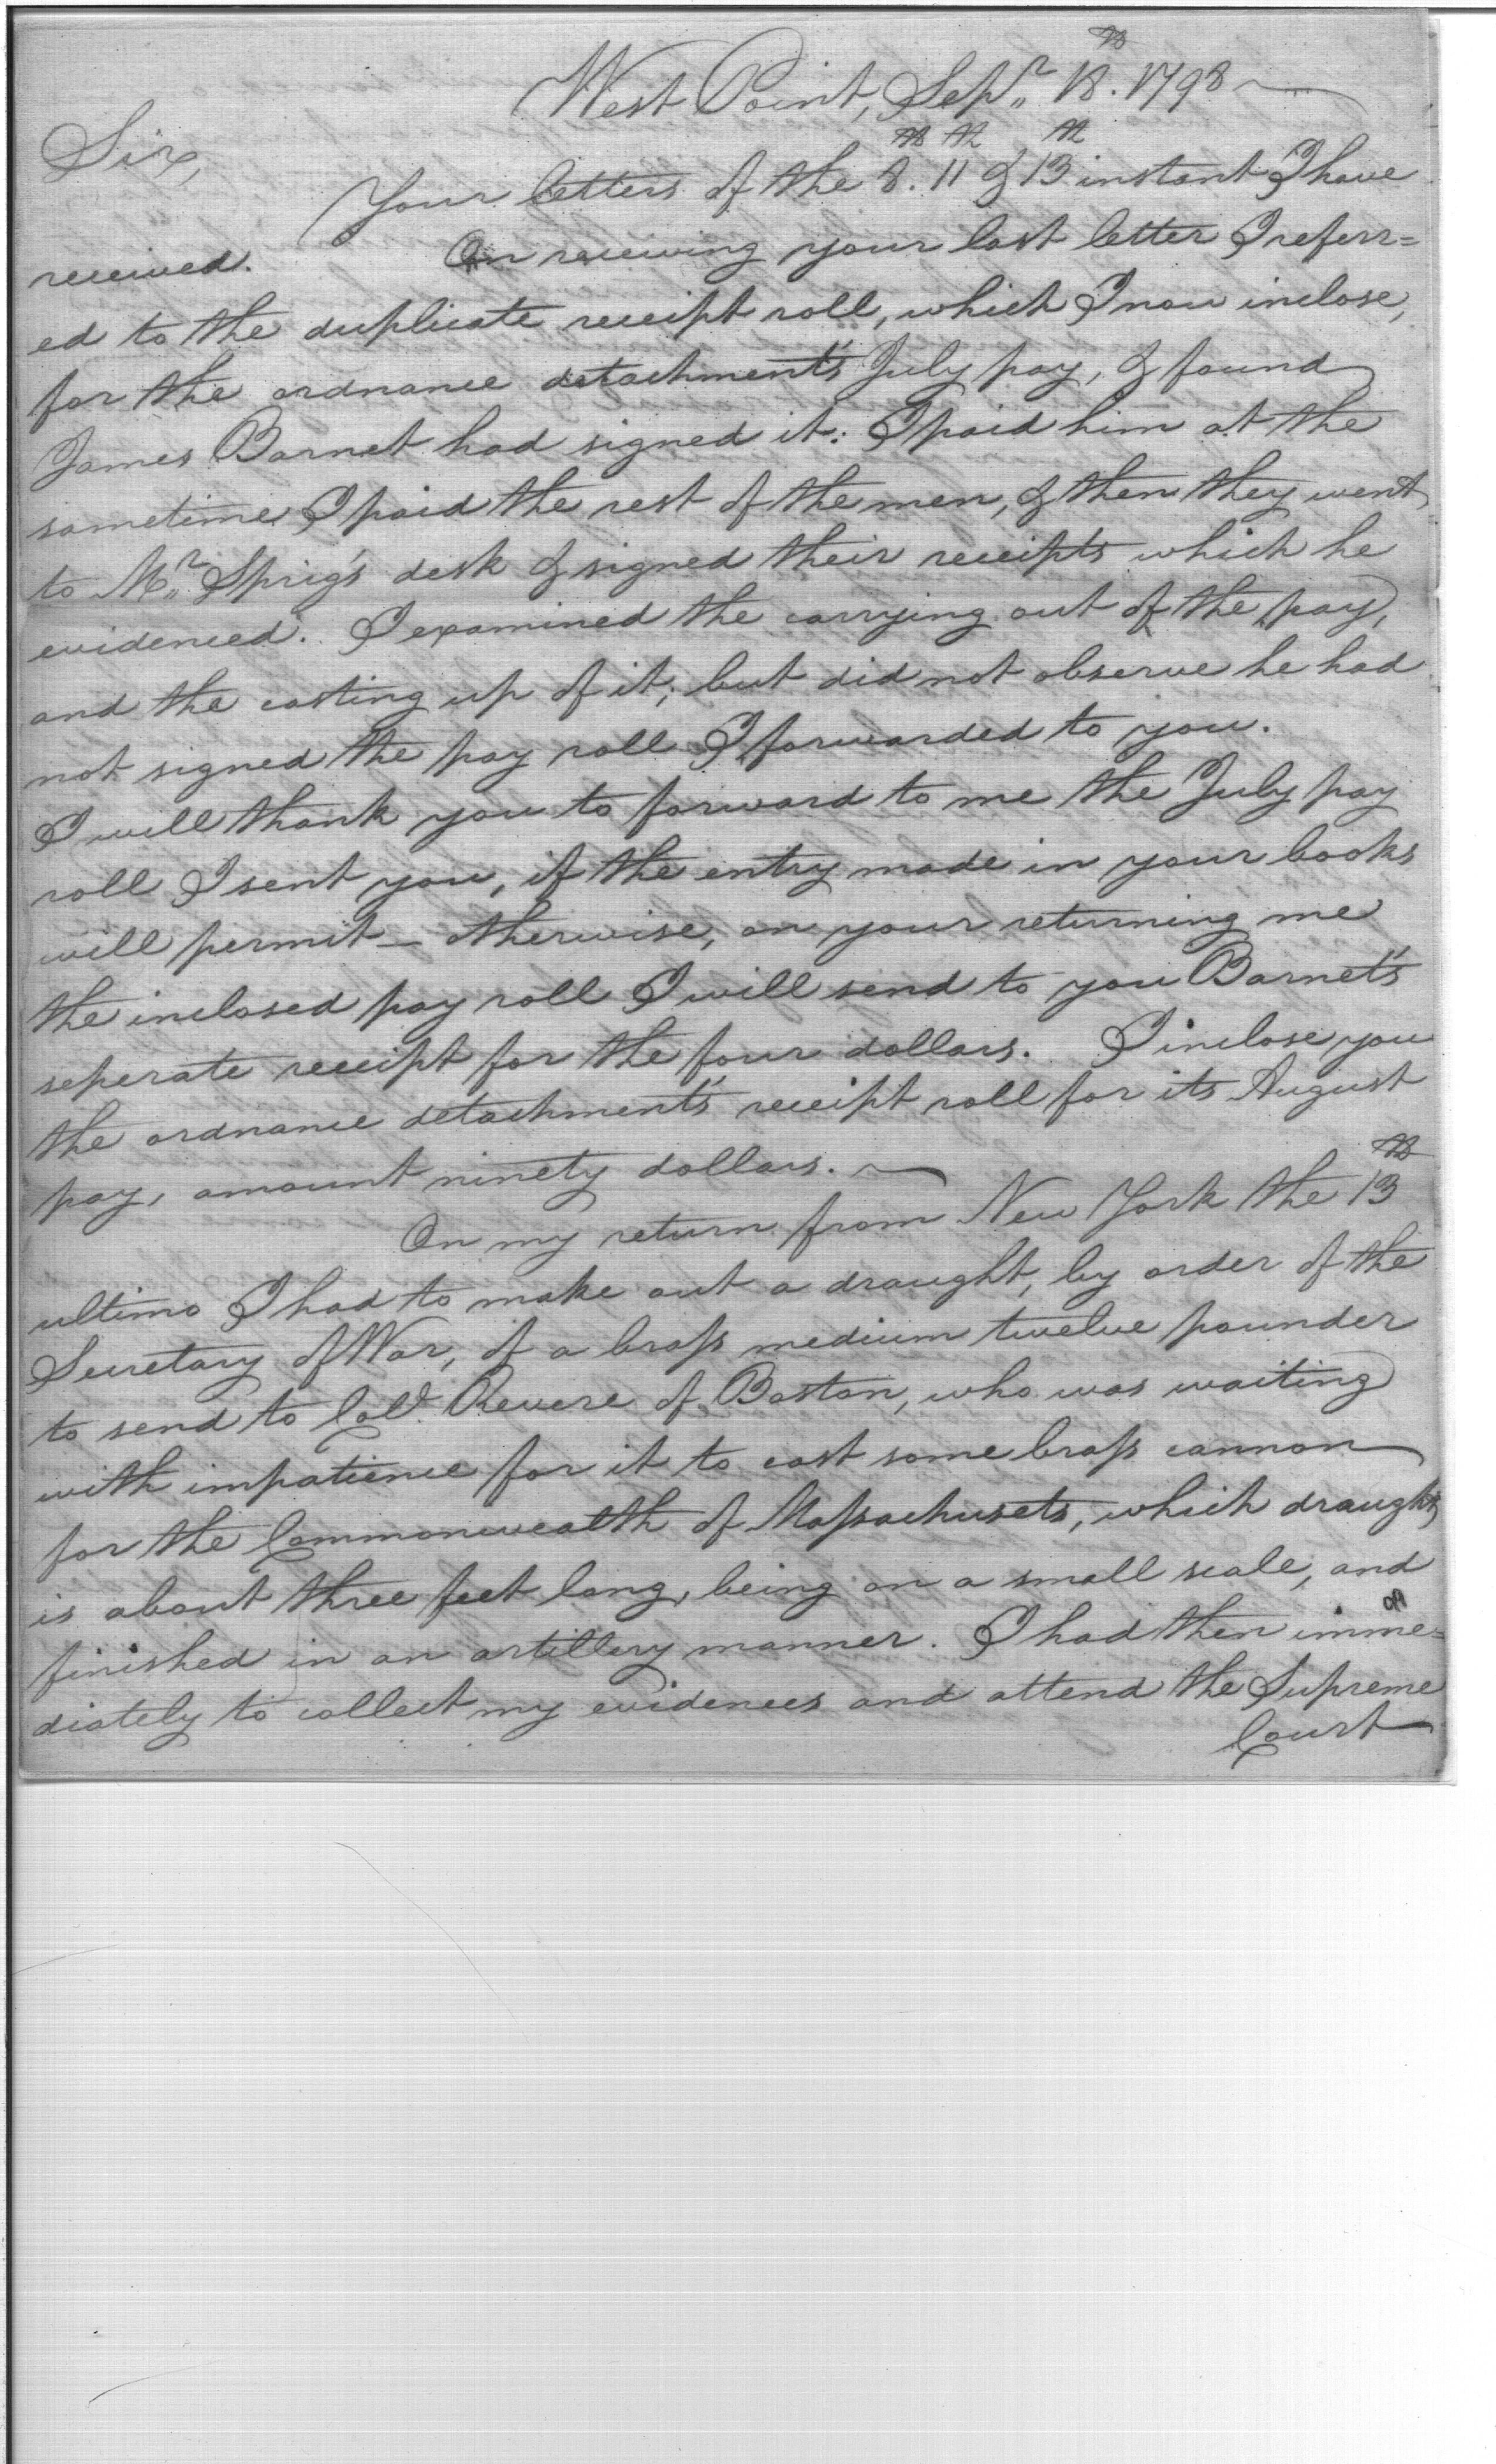 West Point, Sepr. 18th. 1798
Sir,
Your letters of the 8th. 11th & 13th instant I have
received. On receiving your last letter I referr=
ed to the duplicate receipt roll, which I now inclose,
for the ordnance detachment's July pay, & found
James Barnet had signed it: I paid him at the
sametime I paid the rest of the men, & then they went
to Mr. Sprig's desk & signed their receipts which he
evidenced. I examined the carrying out of the pay,
and the casting up of it; but did not observe he had
not signed the pay roll I forwarded to you.
I will thank you to forward to me the July pay
roll I sent you, if the entry made in your books
will permit — otherwise, on your returning me
the inclosed pay roll I will send to you Barnet's
seperate receipt for the four dollars. I inclose you
the ordnance detachment's receipt roll for its August
pay, amount ninety dollars. —
On my return from New York the 13th
ultimo I had to make out a draught, by order of the
Secretary of War, of a brass medium twelve pounder
to send to Col. Revere of Boston, who was waiting
with impatience for it to cast some brass cannon
for the Commonwealth of Massachusets, which draught
is about three feet long, being on a small scale, and
finished in an artillery manner. I had then imme=
diately to collect my evidences and attend the Supreme
Court